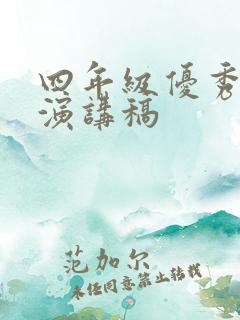 四年級優秀
演講稿
范加尔
未经同意禁止转载